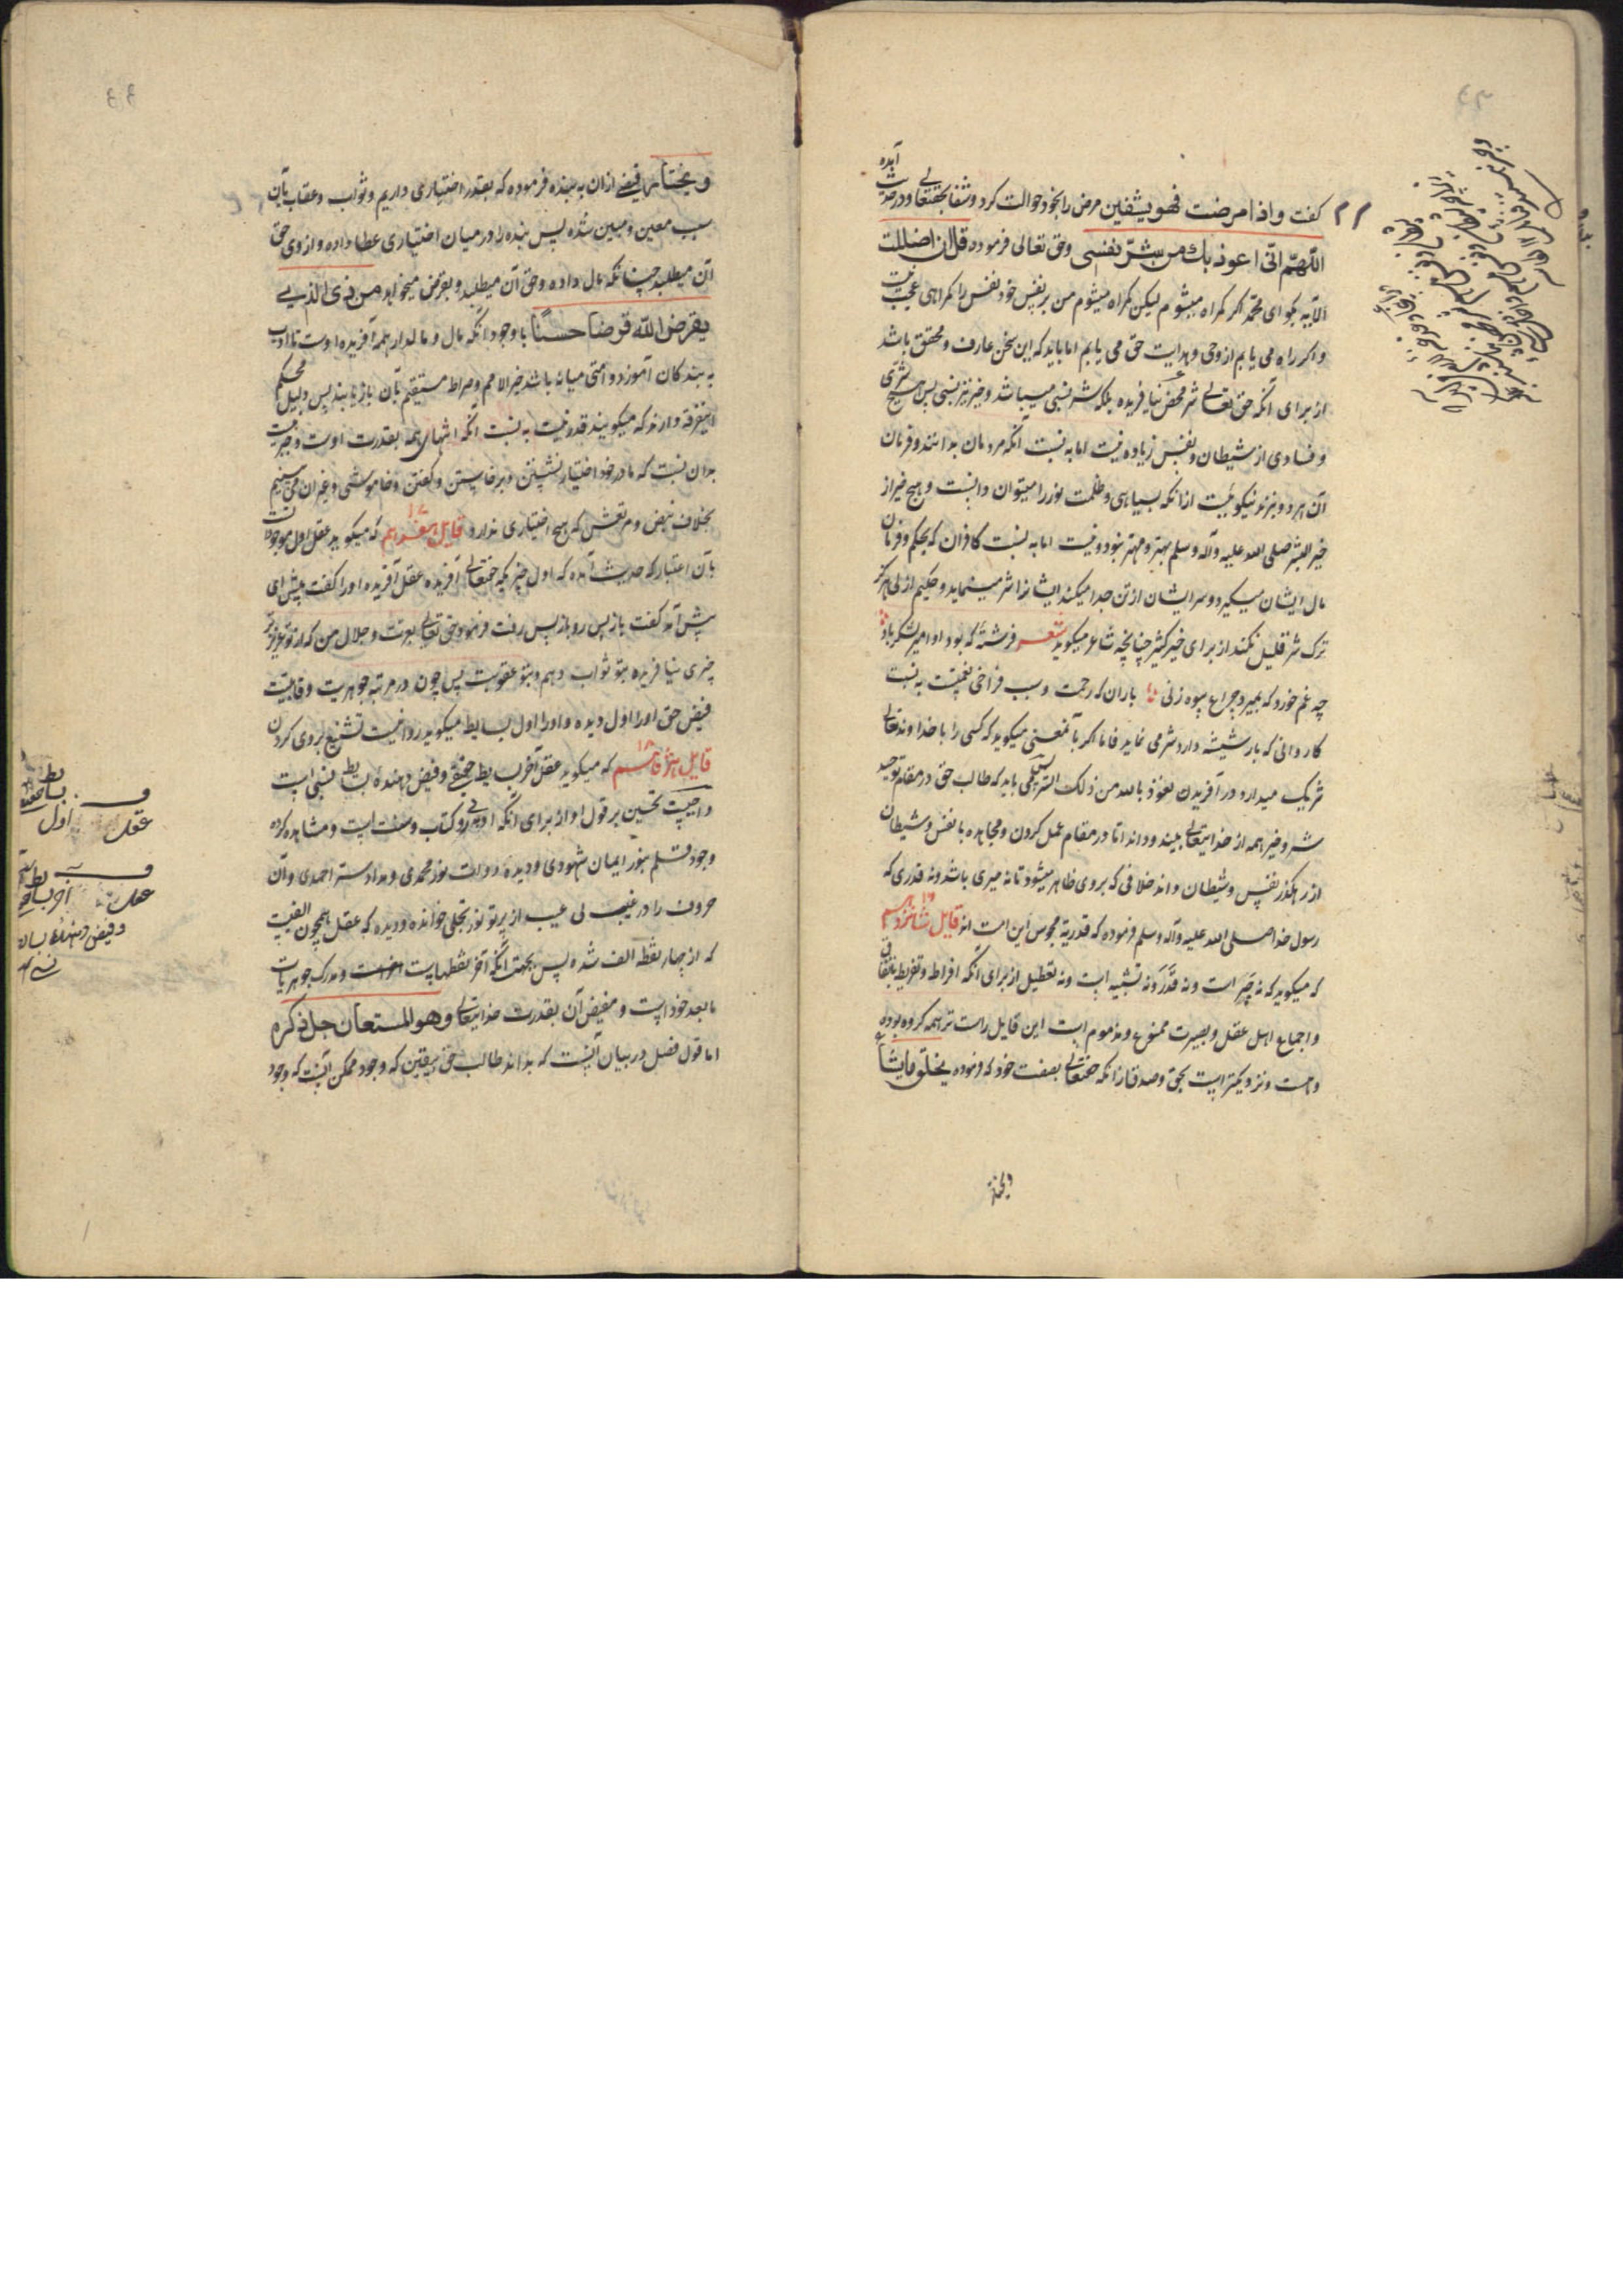 گفت واذا مرضت فهو یشفین مرض را بخود حوالت کرد و شفا بحقتعالی و در حدیث آمده
اللهم انی اعوذ بك من شر نفسی وحق تعالی فرموده قل ان اضللت
الآیه بگو ای محمد اگر گمراه میشوم لیکن گمراه میشوم من بر نفس خود نفس را گمراهی عجب نیست
و اگر راه می یابم از وحی و هدایت حق می یابم اما باید که این سخن عارف و محقق باشد
از برای آنکه حق تعالی شر محض نیافریده بلکه شر نسبی میباشد و خیر نیز نسبی پس هیچ شری
و فسادی از شیطان و نفس زیاده نیست اما به نسبت آنکه مردمان بدانند و فرمان
آن هر دو نبرند نیکوئیست از آنکه بسیاهی و ظلمت نور را میتوان دانست و هیچ خیر از
خیر البشر صلی الله علیه وآله وسلم بهتر و مهتر نبود و نیست اما به نسبت کافران که بحکم و فرمان
مال ایشان میگیرد و سر ایشان از تن جدا میکند ایشانرا شر مینماید و حکیم ازلی هرگز
ترک شر قلیل نکند از برای خیر کثیر چنانچه شاعر میگوید شعر فرشته که بود او امیر لشکر باد
چه غم خورد که بمیرد چراغ بیوه زنی باران که رحمت و سبب فراخی نعمتست به نسبت
کاروانی که بار شیشه دارد شر می نماید فاما اگر بآنمعنی میگوید که کسی را با خداوند تعالی
شریک میدارد در آفریدن نعوذ بالله من ذلک الشر لیکن می باید که طالب حق در مقام توحید
شر و خیر همه از خدایتعالی بیند و داند اما در مقام عمل کردن و مجاهده با نفس و شیطان
از رهگذر نفس و شیطان داند خلافی که بروی ظاهر میشود تا نه جبری باشد و نه قدری که
رسول خدا صلی الله علیه وآله وسلم فرموده که قدریة مجوس این امت اند قایل شانزدهم
که میگوید که نه جبر است و نه قدر و نه تشبیه است و نه تعطیل از برای آنکه افراط و تفریط باتفاق
و اجماع اهل عقل و بصیرت ممنوع و مذموم است این قایل راست تر همه گروه بوده
و هست و نزدیکتر است بحق و صدق از آنکه حقتعالی بصفت خود که فرموده یخلق ما یشآء
ویختار فیضی ازان به بنده فرموده که بقدر اختیاری داریم و ثواب و عقاب بآن
سبب معین و مبین شده پس بنده را در میان اختیاری عطا داده و از وی حق
آن میطلبد چنانکه مال داده و حق آن میطلبد و بقرض میخواهد من ذی الذی
یقرض الله قرضا حسنا با وجود آنکه مال و مالدار همه آفریده اوست تا ادب
به بندگان آموزد و امتی میانه باشد خیر الامم و صراط مستقیم بآن باز یابند پس دلیل محکم
اینفرقه دارند که میگویند قدر نیست به نسبت آنکه انتهای همه بقدرت اوست و جبر نیست
بدان نسبت که ما در خود اختیار نشستن و برخاستن و گفتن و خاموشی و غیر آن می بینیم
بخلاف نبض و مرتعش که هیچ اختیاری ندارد قایل هفدهم که میگوید عقل اول موجودات است
بآن اعتبار که حدیث آمده که اول چیزیکه حقتعالی آفریده عقل آفریده او را گفت پیش آی
پیش آمد گفت باز پس رو باز پس رفت فرمود حق تعالی بعزت و جلال من که از تو عزیزتر
چیزی نیافریدم بتو ثواب دهم و بتو عقوبت پس چون در مرتبه جوهریت و قابلیت
فیض حق او را اول دیده و او را اول بسایط میگوید روا نیست تشنیع بروی کردن
قایل هژدهم که میگوید عقل آخر بسایط حقیقی و فیض دهنده بسایط نسبی است
واجبست تحسین بر قول او از برای آنکه او پی رو کتاب و سنت است و مشاهده کرده
وجود قلم بنور ایمان شهودی و دیده دوات نور محمدی و مداد سر احمدی و آن
حروف را در غیب لی غیب از پرتو نور تجلی خوانده و دیده که عقل همچون الفیست
که از چهار نقطه الف شده پس بجهت آنکه آخر نقطهاست و مدرک جوهریات
ما بعد خود است و مفیض آن بقدرت خدایتعالی وهو المستعان جل ذکره
اما قول فصل در بیان آنست که بداند طالب حق بیقین که وجود ممکن آنست که وجود
ویختار
عقل اول
عقل آخر بسایط
و فیض دهنده بسایط